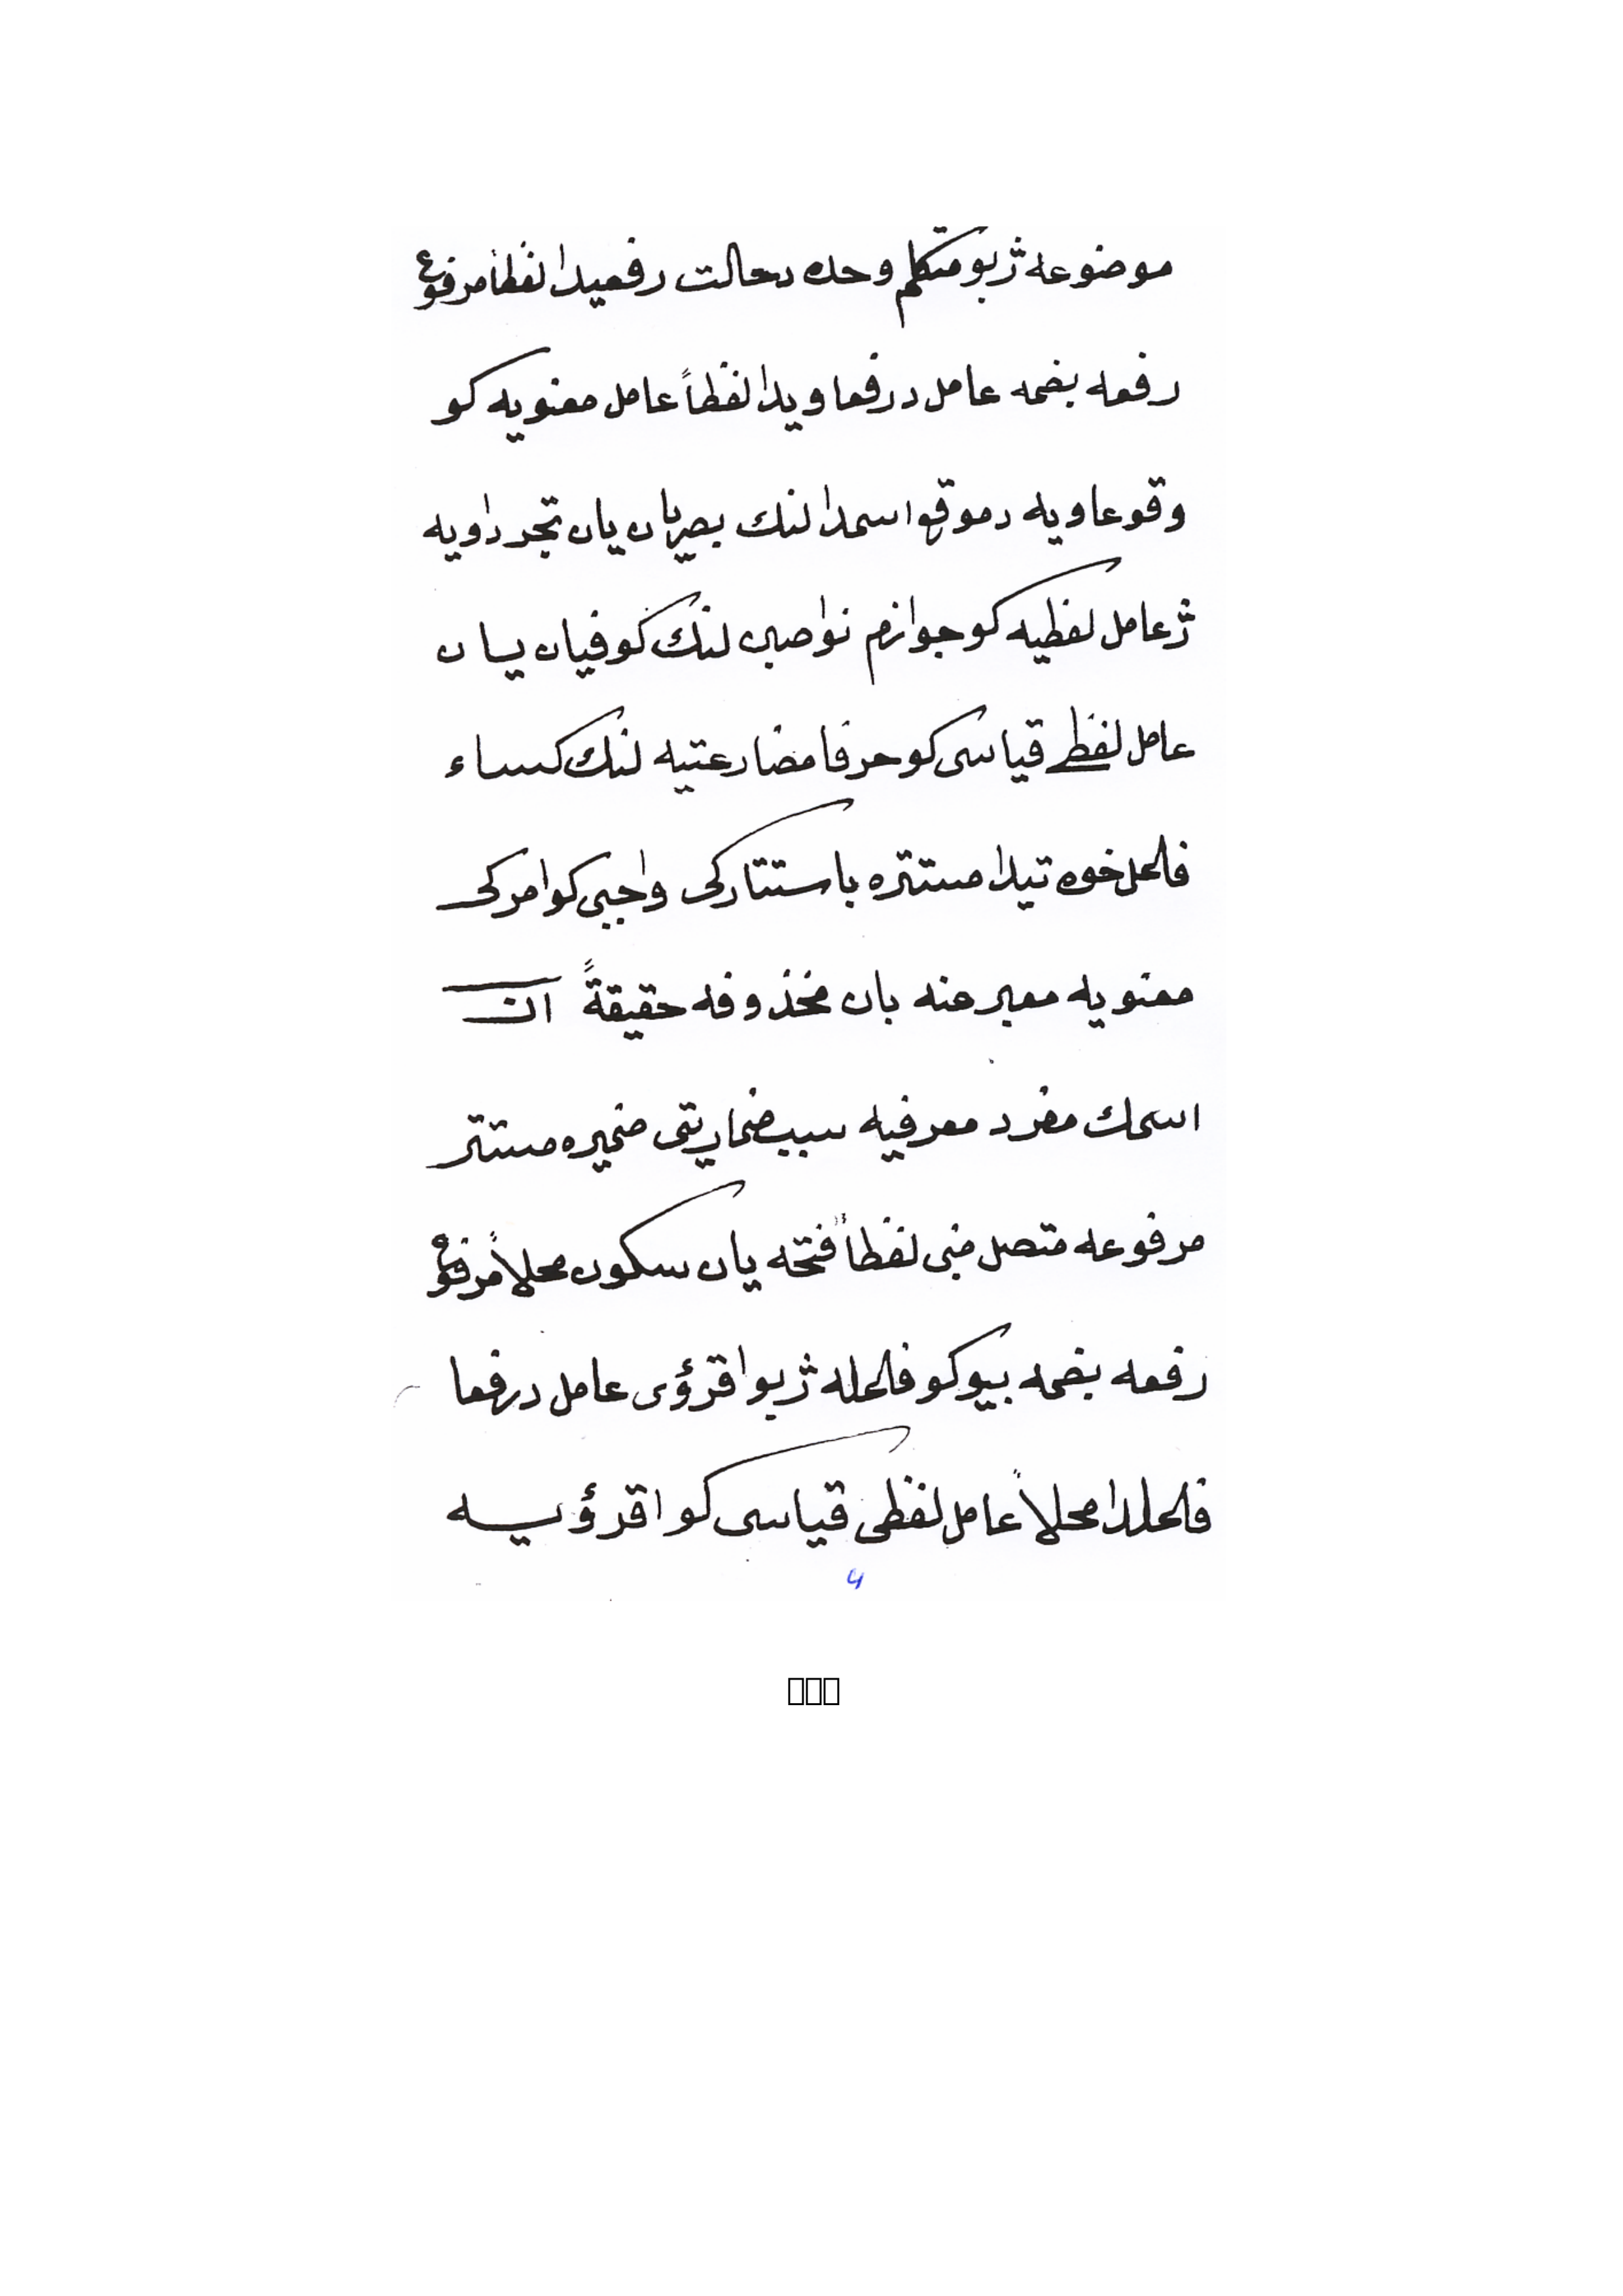 موضوعه ژبو متكلم وحده دحالت رفعيدا لفظاً مرفوع
رفعه بضمه عامل درفعا ويدا لفظاً عامل معنويه كو
وقوعا ويه دموقها اسمدا لنك بصريان يان تجرداويه
ژعامل لفظيه كو جوازم نواصبن لنك كوفيان يسان
عامل لفظے قياسى كو حرفا مضارعتيه لنك كساء
فاعل خوه تيدا مستتره باستتاركى واجبى كو امركى
معنويه معبر عنه بان مخذوفه حقيقةً ان
اسمك مفرد معرفيه سبب ضماريتى ضميره مستتر
مرفوعه متصل مبنى لفظاً فتحه يان سكون محلاً مرفوع
رفعه بضمه بيوكو فاعله ژبو اقرؤى عامل درفعا
فاعلدا محلاً عامل لفظى قياسى كو اقرؤيه
4